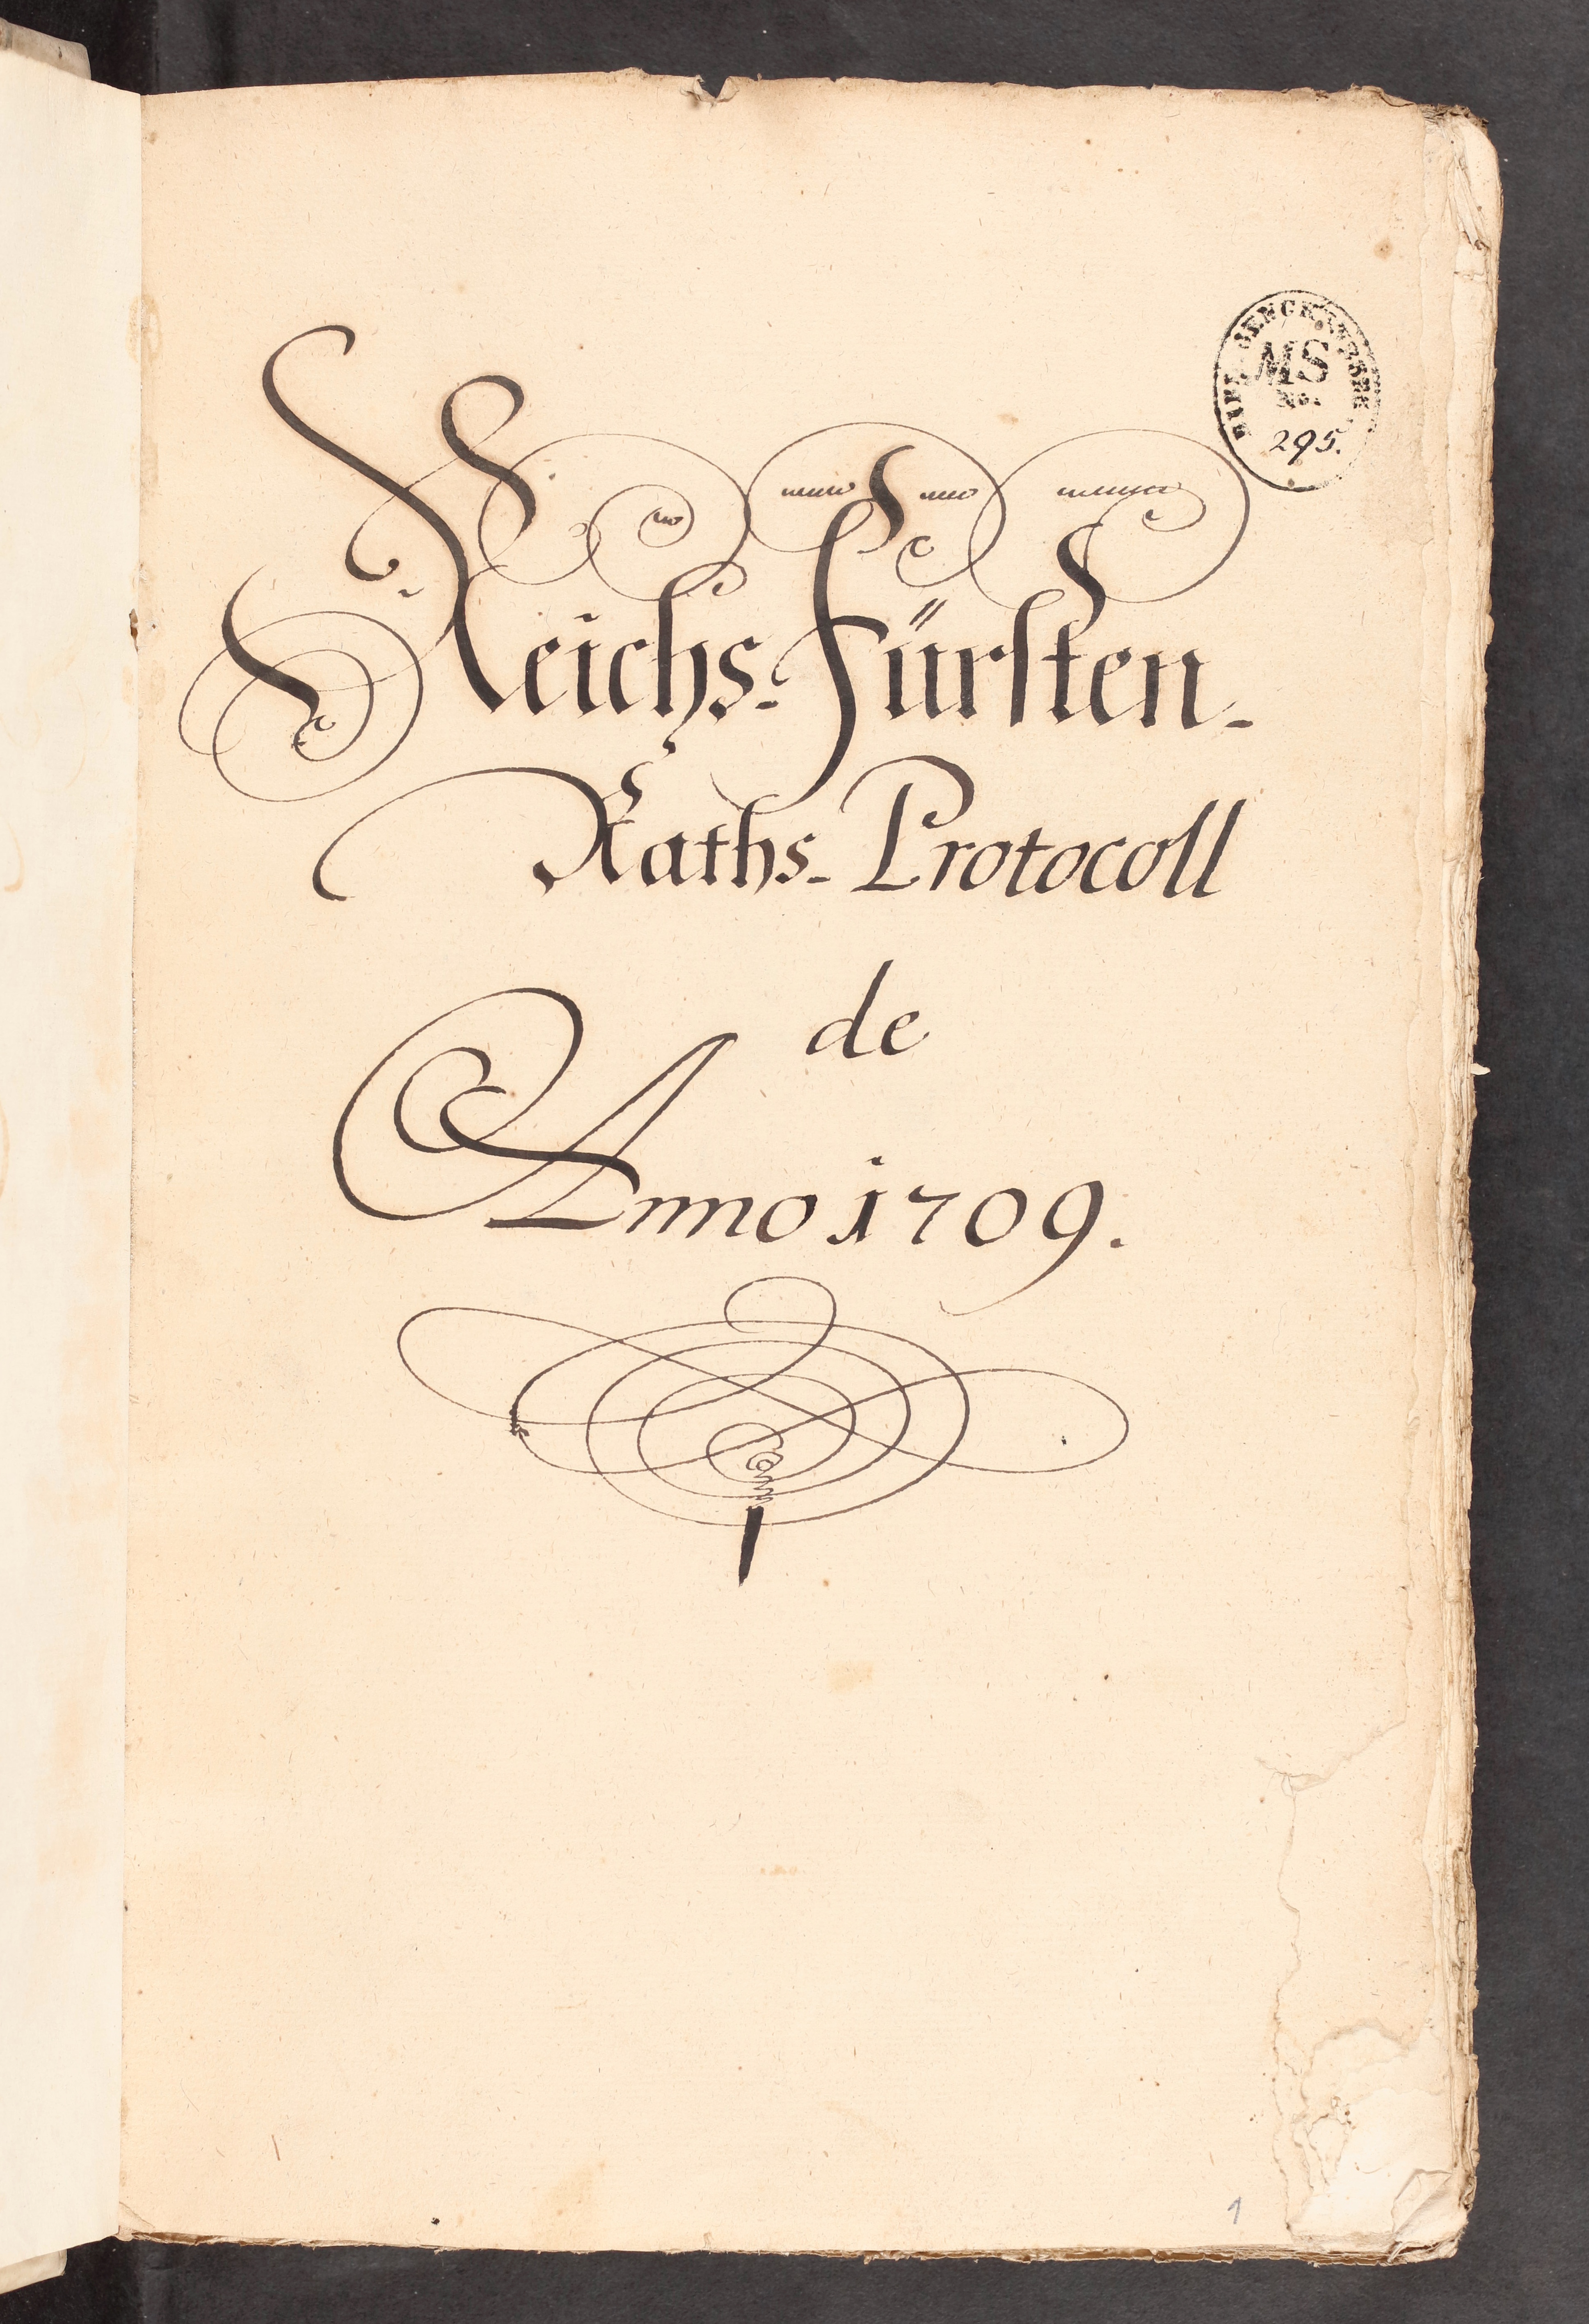 MS
No.
295.
Reichs-Fürsten-
Raths-Protocoll
de
Anno 1709.
1